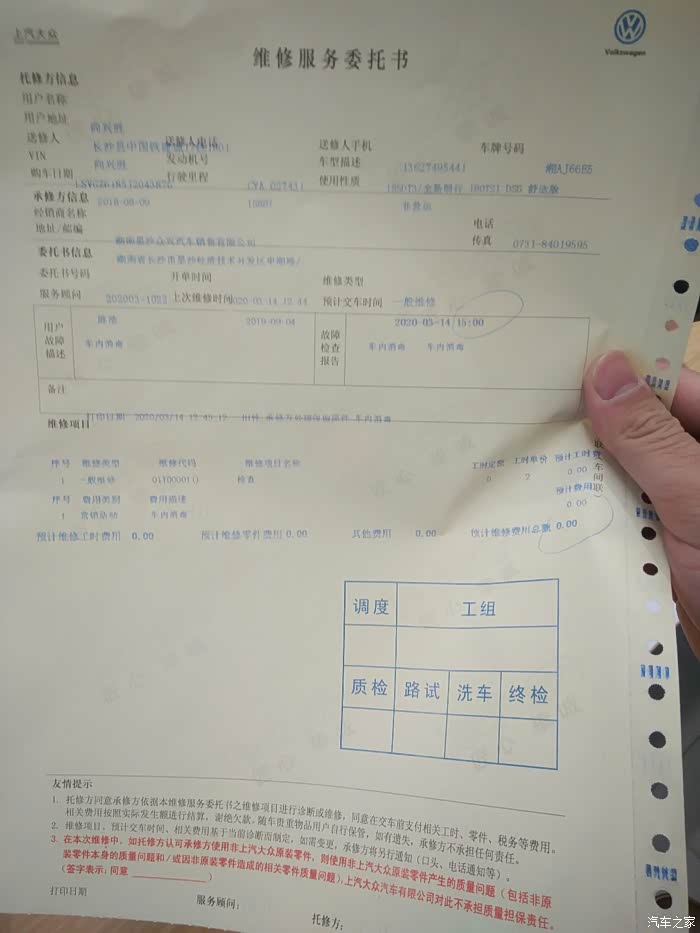 上汽大众
Volkswagen
维修服务委托书
托修方信息
用户名称
用户地址
尚兴胜
送修人 送修人电话 送修人手机 车牌号码
VIN 尚兴胜 发动机号 车型描述 13627495441 湘AJ66E5
购车日期 行驶里程 使用性质
承修方信息 2018-08-09 非营运
经销商名称 电话
地址/邮编 传真 0731-84019595
委托书信息
委托书号码 开单时间 维修类型
服务顾问 202003-1022 上次维修时间 2020-03-14 12:44 预计交车时间 一般维修
2019-09-04 2020-03-14 15:00
用户故障描述 车内消毒 故障检查报告 车内消毒 车内消毒
备注
打印日期 2020/03/14 12:45:12
维修项目
序号 维修类型 维修代码 维修项目名称 工时定额 工时单价 预计工时费
1 一般维修 检查 0 2 0.00
序号 费用类别 费用描述 预计费用
1 营销活动 车内消毒 0.00
预计维修工时费用 0.00 预计维修零件费用 0.00 其他费用 0.00 预计维修费用总额 0.00
调度 工组
质检 路试 洗车 终检
友情提示
1. 托修方同意承修方依据本维修服务委托书之维修项目进行诊断或维修，同意在交车前支付相关工时、零件、税务等费用。
相关费用按照实际发生额进行结算，谢绝欠款。随车贵重物品用户自行保管，如有遗失，承修方不承担任何责任。
2. 维修项目、预计交车时间、相关费用基于当前诊断而制定，如需变更，承修方将另行通知（口头、电话通知等）。
3. 在本次维修中，如托修方认可承修方使用非上汽大众原装零件，则使用非上汽大众原装零件产生的质量问题（包括非原
装零件本身的质量问题和/或因非原装零件造成的相关零件质量问题），上汽大众汽车有限公司对此不承担质量担保责任。
（签字表示：同意 ）
打印日期 服务顾问： 托修方：
汽车之家